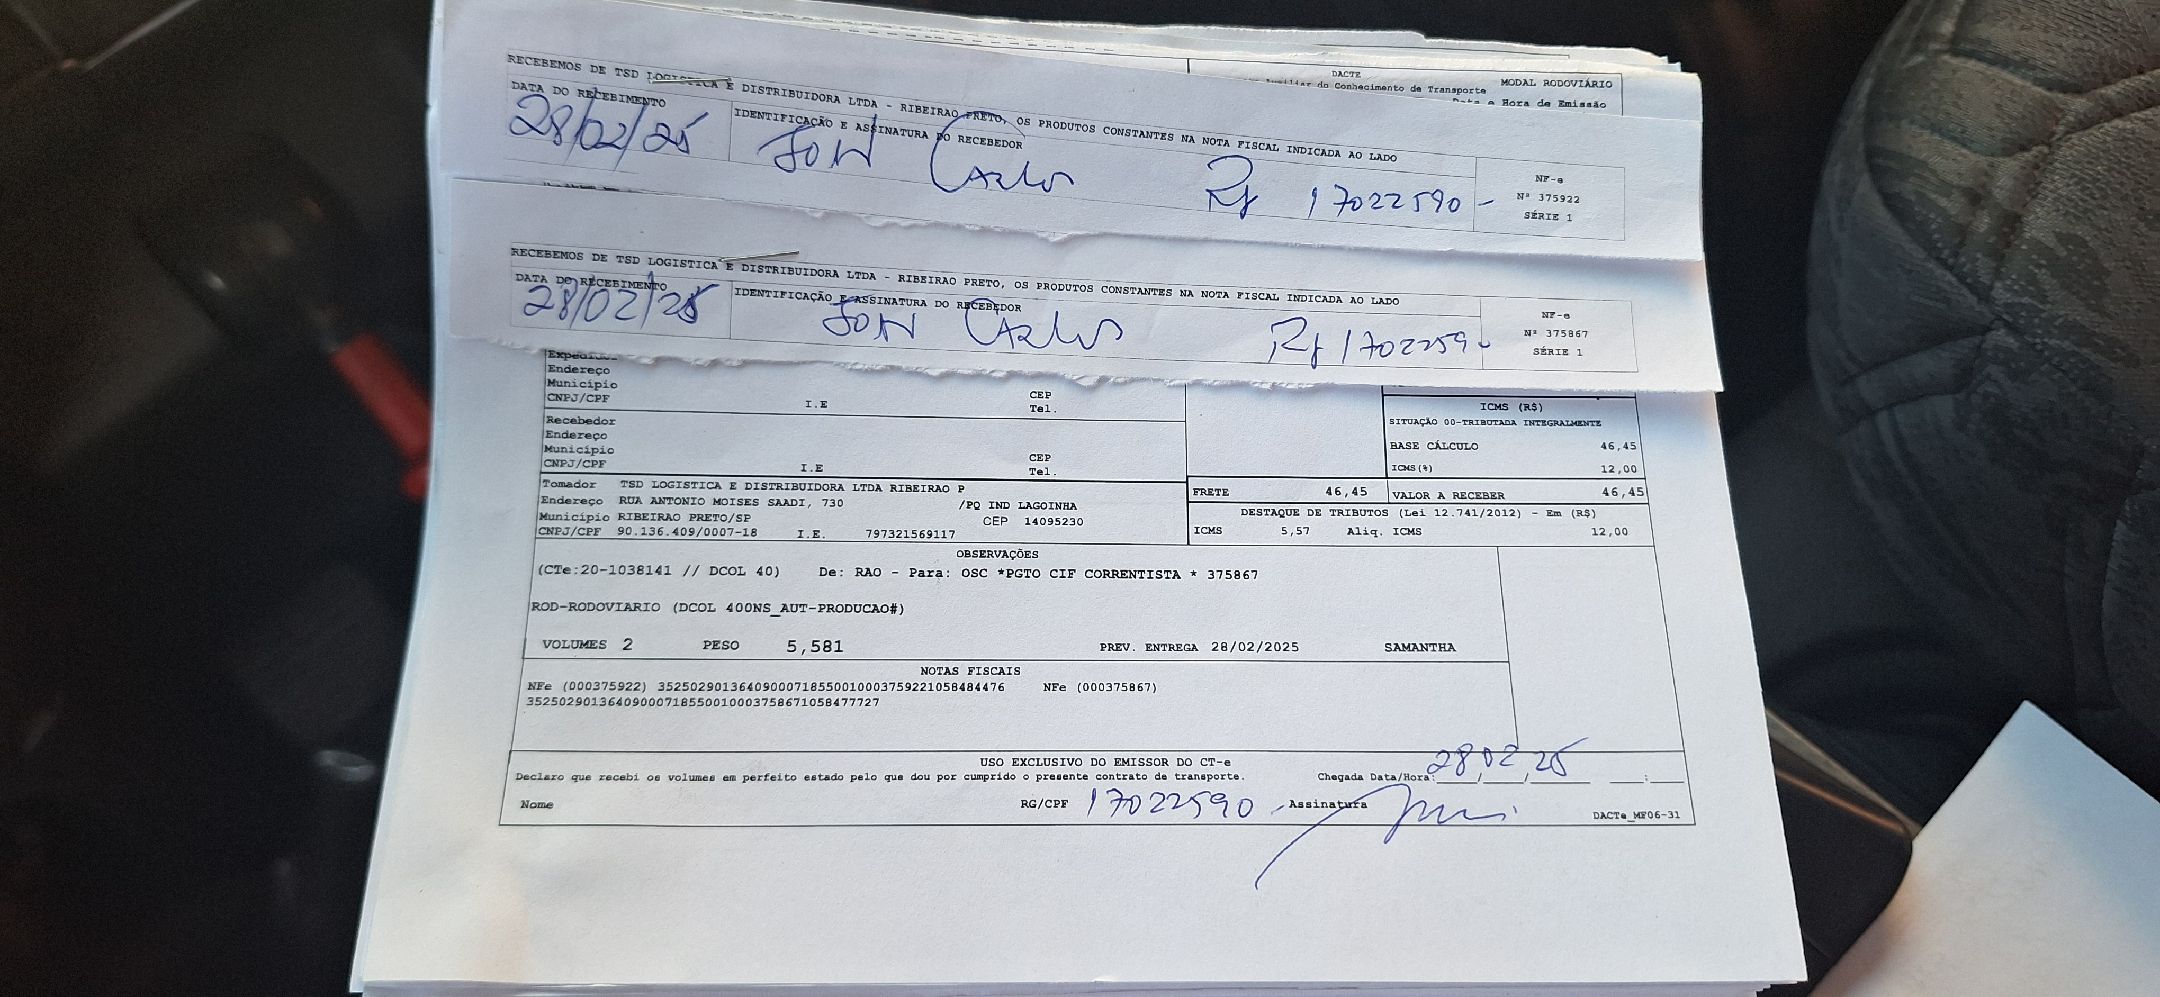 DACTE
MODAL RODOVIÁRIO
do Conhecimento de Transporte
e Hora de Emissão
RECEBEMOS DE TSD LOGISTICA E DISTRIBUIDORA LTDA - RIBEIRAO PRETO, OS PRODUTOS CONSTANTES NA NOTA FISCAL INDICADA AO LADO
DATA DO RECEBIMENTO
IDENTIFICAÇÃO E ASSINATURA DO RECEBEDOR
28/02/25
Carlos
17022590 -
NF-e
Nº 375922
SÉRIE 1
RECEBEMOS DE TSD LOGISTICA E DISTRIBUIDORA LTDA - RIBEIRAO PRETO, OS PRODUTOS CONSTANTES NA NOTA FISCAL INDICADA AO LADO
DATA DO RECEBIMENTO
IDENTIFICAÇÃO E ASSINATURA DO RECEBEDOR
28/02/25
Carlos
NF-e
Nº 375867
SÉRIE 1
Endereço
Município CEP
CNPJ/CPF I.E Tel.
Recebedor
Endereço
Município CEP
CNPJ/CPF I.E Tel.
ICMS (R$)
SITUAÇÃO 00-TRIBUTADA INTEGRALMENTE
BASE CÁLCULO 46,45
ICMS(%) 12,00
Tomador TSD LOGISTICA E DISTRIBUIDORA LTDA RIBEIRAO P
Endereço RUA ANTONIO MOISES SAADI, 730 /PQ IND LAGOINHA
Município RIBEIRAO PRETO/SP CEP 14095230
CNPJ/CPF 90.136.409/0007-18 I.E. 797321569117
FRETE 46,45 VALOR A RECEBER 46,45
DESTAQUE DE TRIBUTOS (Lei 12.741/2012) - Em (R$)
ICMS 5,57 Aliq. ICMS 12,00
OBSERVAÇÕES
(CTe:20-1038141 // DCOL 40) De: RAO - Para: OSC *PGTO CIF CORRENTISTA * 375867
ROD-RODOVIARIO (DCOL 400NS_AUT-PRODUCAO#)
VOLUMES 2 PESO 5,581 PREV. ENTREGA 28/02/2025 SAMANTHA
NOTAS FISCAIS
NFe (000375922) 35250290136409000718550010003759221058484476 NFe (000375867)
35250290136409000718550010003758671058477727
USO EXCLUSIVO DO EMISSOR DO CT-e
Declaro que recebi os volumes em perfeito estado pelo que dou por cumprido o presente contrato de transporte. Chegada Data/Hora: 28/02/25
Nome RG/CPF 17022590 - Assinatura
DACTe_MF06-31